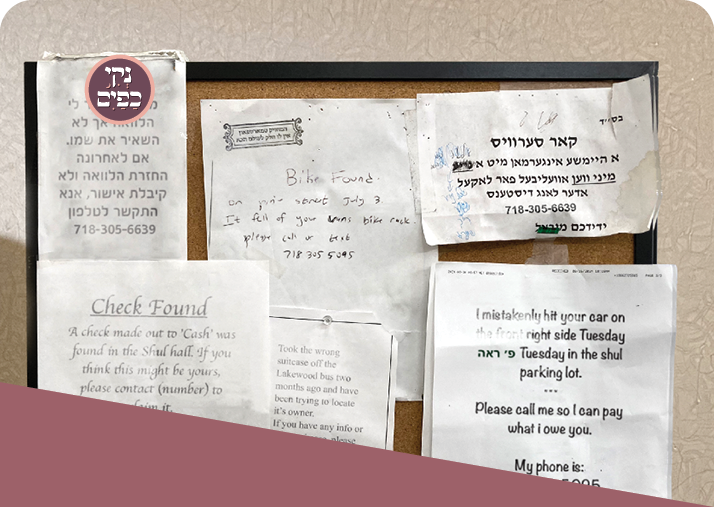 נקי
כפים
לי
הלוואה אך לא
השאיר את שמו.
אם לאחרונה
החזרת הלוואה ולא
קיבלת אישור, אנא
התקשר לטלפון
718-305-6639
Bike Found.
on street July 3
It fell of your bike rack.
please call or text
718 305 5095
בס״ד
קאר סערוויס
א היימישע אינגערמאן מיט א
מיני ווען אוועליבעל פאר לאקעל
אדער לאנג דיסטענס
718-305-6639
ידידכם
Check Found
A check made out to 'Cash' was
found in the Shul hall. If you
think this might be yours,
please contact (number) to
claim it.
Took the wrong
suitcase off the
Lakewood bus two
months ago and have
been trying to locate
it's owner.
If you have any info or
please
I mistakenly hit your car on
the front right side Tuesday
פ׳ ראה Tuesday in the shul
parking lot.
---
Please call me so I can pay
what i owe you.
My phone is: